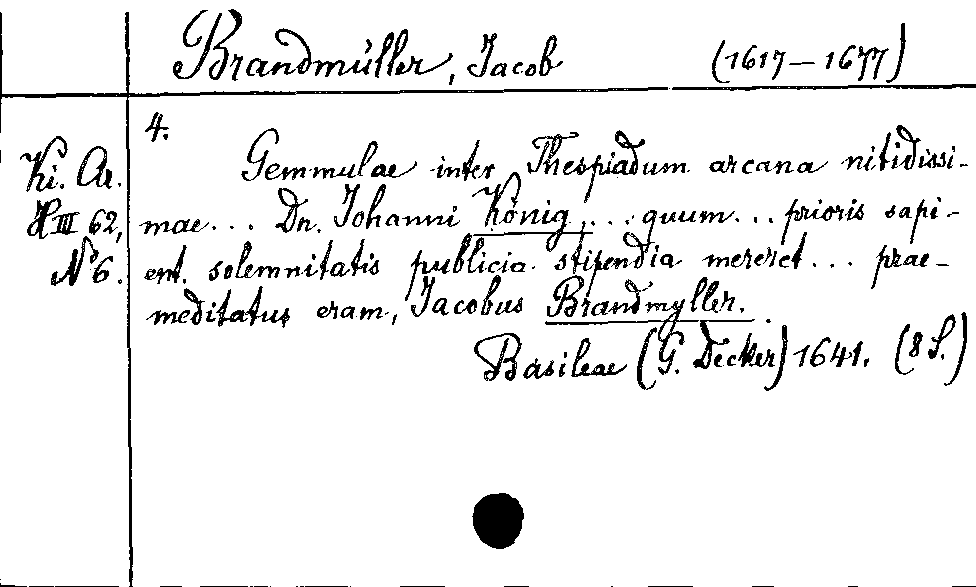 Brandmüller, Jacob (1617–1677)
4.
Ki. Ar.
H III 62,
No 6.
Gemmulae inter Thespiadum arcana nitidissi-
mae... Dn. Johanni König, ... quum... prioris sapi-
ent. solemnitatis publicia stipendia mereret... prae-
meditatus eram, Jacobus Brandmyller.
Basileae (G. Decker) 1641. (8 S.)